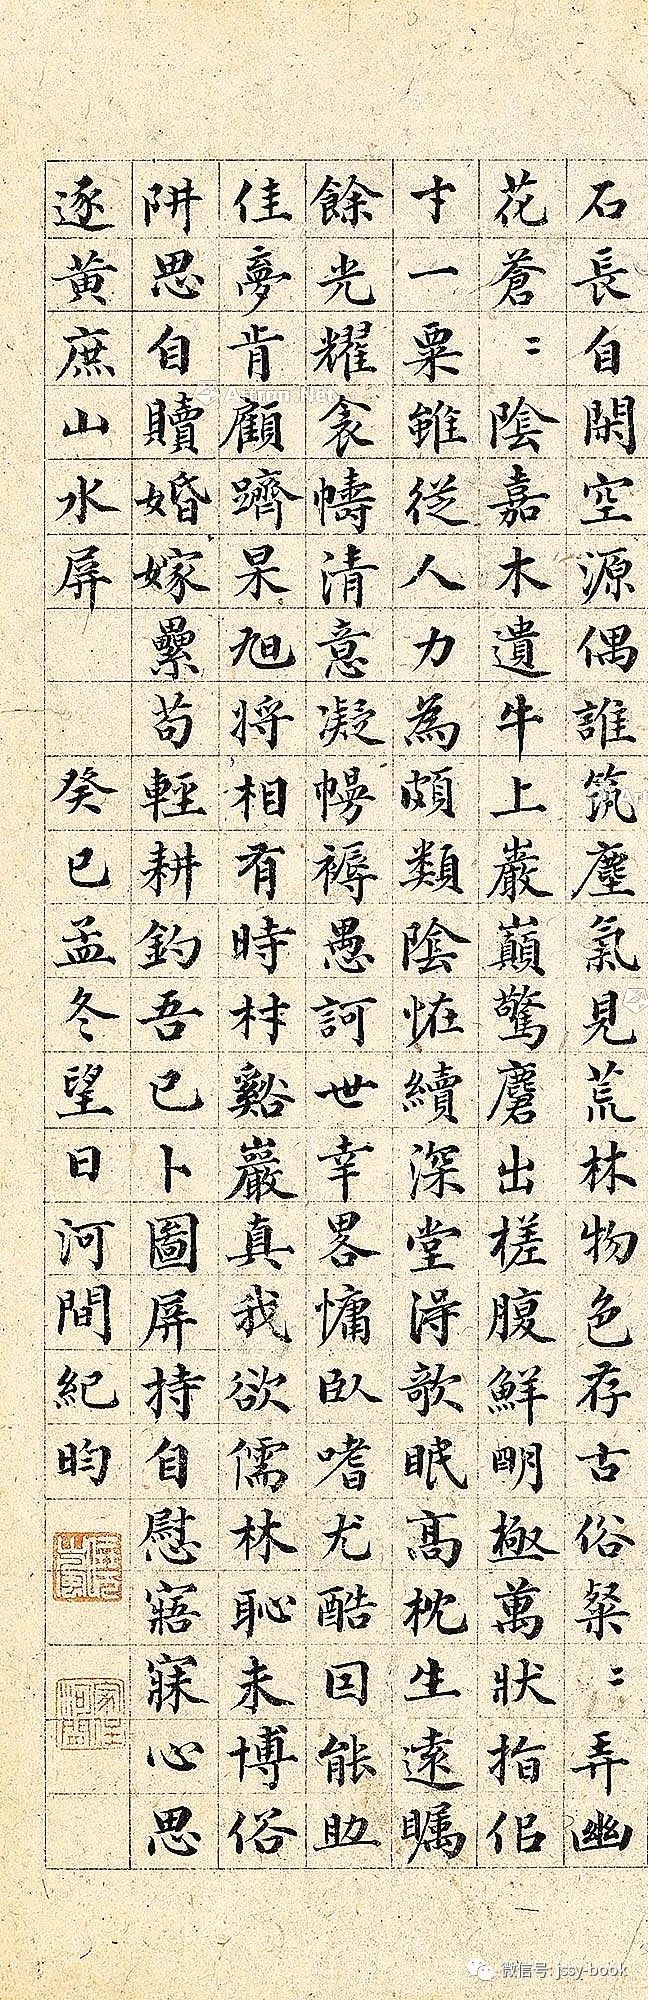 石長自閑空源偶誰筑塵氣見荒林物色存古俗粲〻弄幽
花蒼〻陰嘉木遺牛上巖巔驚麏出槎腹鮮明極萬狀指佀
十一粟雖從人力為頗類陰恠續深堂淂歌眠高枕生遠矚
餘光耀衾幬清意凝幔褥愚訶世幸畧慵臥嗜尤酷因能助
佳夢肯顧躋杲旭將相有時材谿巖真我欲儒林恥未博俗
阱思自贖婚嫁纍苟輕耕釣吾已卜圖屏持自慰寤寐心思
逐黃庶山水屏 癸巳孟冬望日河間紀昀
家住河間
Artron.Net
微信号: jssy-book